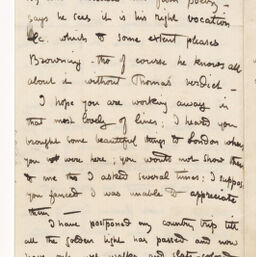 says he sees it is his right vocation
&c. which to some extent pleases
Browning - tho' of course he knows all
about it without Thomas' verdict -
I hope you are working away in
that most lovely of lines; I heard you
brought some beautiful things to London when
you were here; you would not show them
to me tho I asked several times; I suppose
you fancied I was unable to appreciate
them -
I have postponed my country trip till
all the golden light has passed and now